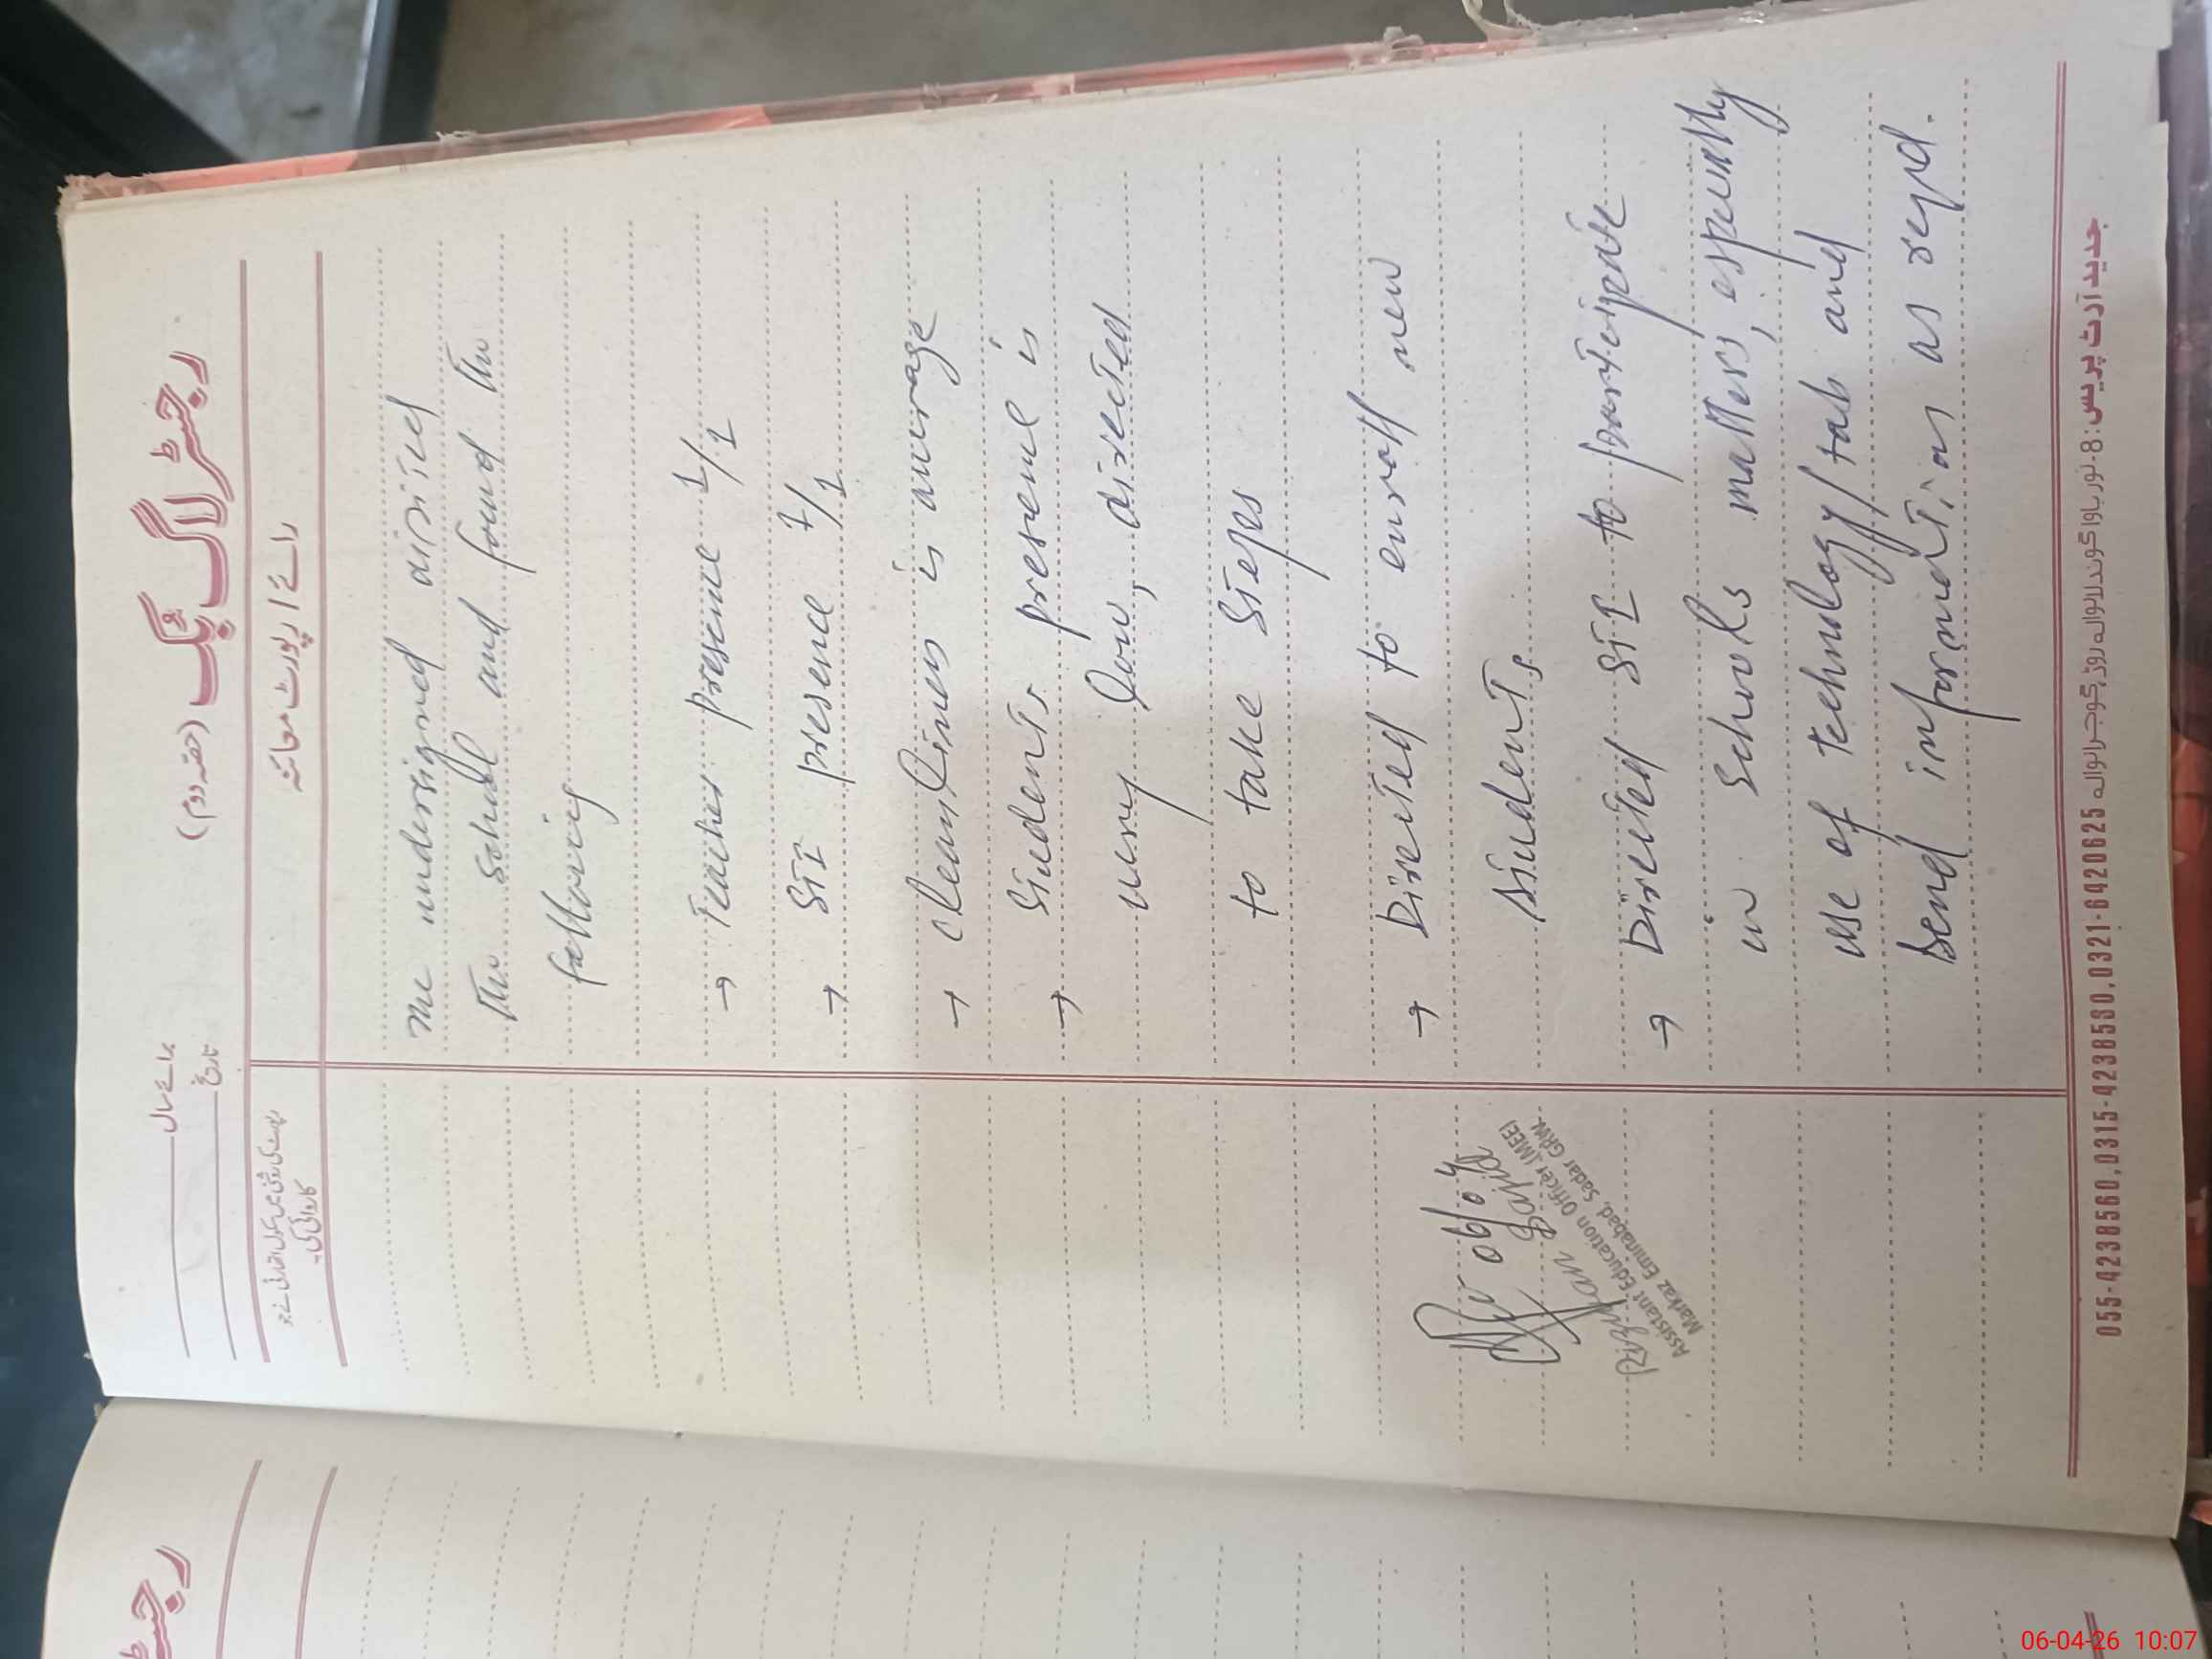 رجسٹر لاگ بک (حصہ دوم)
بمائے سال
تاریخ
رائے / رپورٹ معائنہ
کاروائی کی۔
The undersigned visited
the school and found the
following
→ Teacher presence 1/1
→ STI presence 1/1
→ cleanliness is average
→ Students presence is
very low, directed
to take steps
→ Directed to enroll new
students
→ Directed STI to participate
in schools matters, especially
use of technology/tab and
send information as reqd.
06/04
Rizwan Sajid
Assistant Education Officer, (MEE)
Markaz Eminabad, Sadar GRW.
جدید آرٹ پریس: 8-نور باوا گوندلانوالہ روڈ گوجرانوالہ 055-4238560,0315-4238530,0321-6420625
رجسٹر
06-04-26 10:07